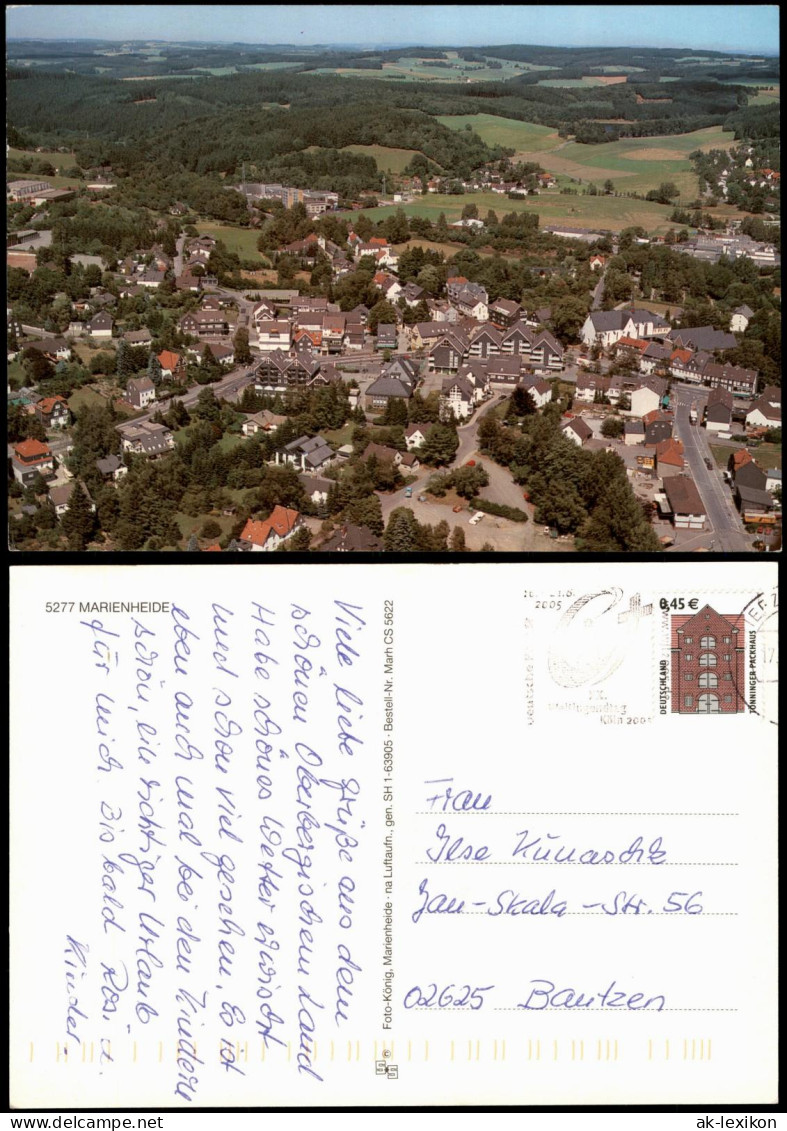 5277 MARIENHEIDE
Viele liebe Grüße aus dem
schönen Oberbergischen Land
Habe schönes Wetter erwischt
und schon viel gesehen. Es ist
eben auch mal bei den Kindern
schön, ein richtiger Urlaub
für mich. Bis bald Rosi u.
Kinder.
Foto-König, Marienheide · na Luftaufn., gen. SH 1-63905 · Bestell-Nr. Marh CS 5622
2005
XX.
Weltjugendtag
Köln 2005
0,45 €
DEUTSCHLAND
TÖNNINGER PACKHAUS
Frau
Ilse Kunaschk
Jan-Skala-Str. 56
02625 Bautzen
©
ak-lexikon